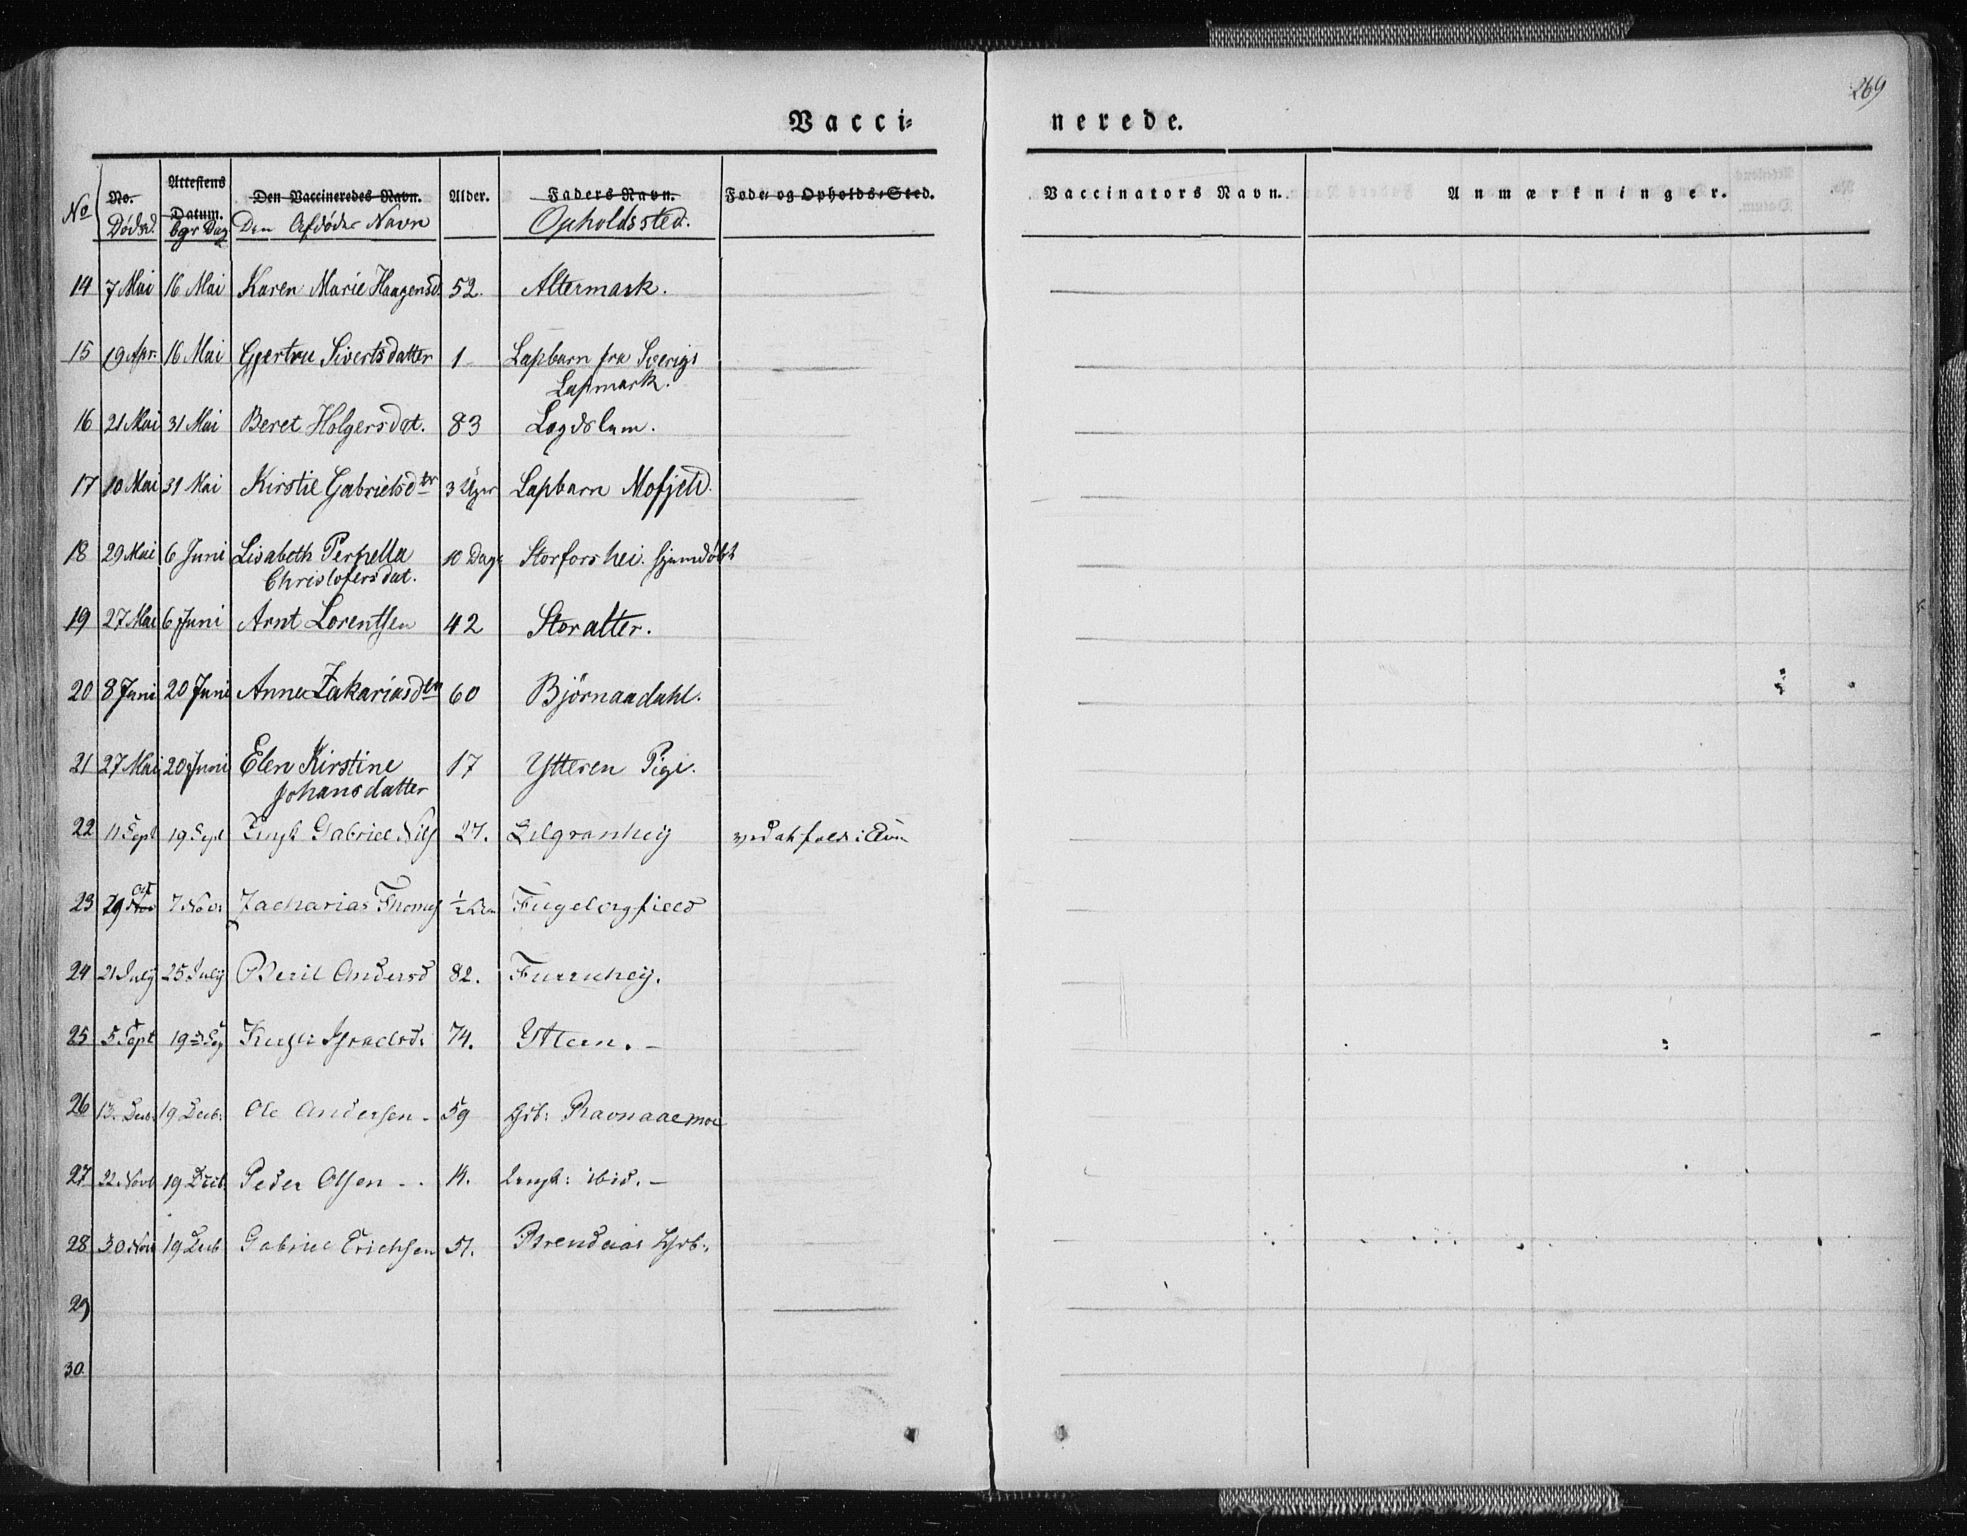 269
Vacci-
nerede.
No No. Attestens Datum. Den Vaccineredes Navn. Alder. Faders Navn. Føde- og Opholds-Sted. Vaccinators Navn. Anmærkninger.
Dødsd. bgr Dag Den Afdødes Navn Opholdssted.
14 7 Mai 16 Mai Karen Marie Haagensd. 52. Altermark.
15 19 Apr. 16 Mai Gjertru Sivertsdatter 1 Lapbarn fra Sverigs
Lapmark.
16 21 Mai 31 Mai Beret Holgersdat. 83 Lægdslem.
17 10 Mai 31 Mai Kirstie Gabrielsdtr 3 Uger Lapbarn Mofjeld.
18 29 Mai 6 Juni Lisabeth Pernella 10 Dage Storforshei. hjemdøbt
Christofersdat.
19 27 Mai 6 Juni Arnt Lorentsen 42 Storalter.
20 8 Juni 20 Juni Anne Zakariasdtr 60 Bjørnaadahl.
21 27 Mai 20 Juni Elen Kirstine 17 Ytteren Pige.
Johansdatter
22 11 Sept 19 Sept Gabriel Nils 27. ved at falde i
23 29 Oct 7 Nov: Zacharias Thomes 1/2
24 21 July 25 July Berit Andersd 82. Furruheij.
25 5 Sept 19 Sep Israelsd: 74. Ytteren. –
26 13. Decb: 19 Decb: Ole Andersen – 59 Grb: Ravnaaemoe
27 22 Novb 19 Decb. Peder Olsen – . ibid. –
28 30 Nov 19 Decb Gabriel Erichsen 51.
29
30.